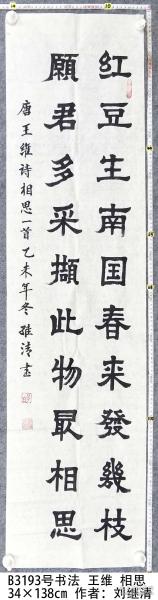 红豆生南国春来發幾枝
願君多采擷此物最相思
唐王维詩相思一首乙未年冬继清書
B3193号书法 王维 相思
34×138cm 作者：刘继清